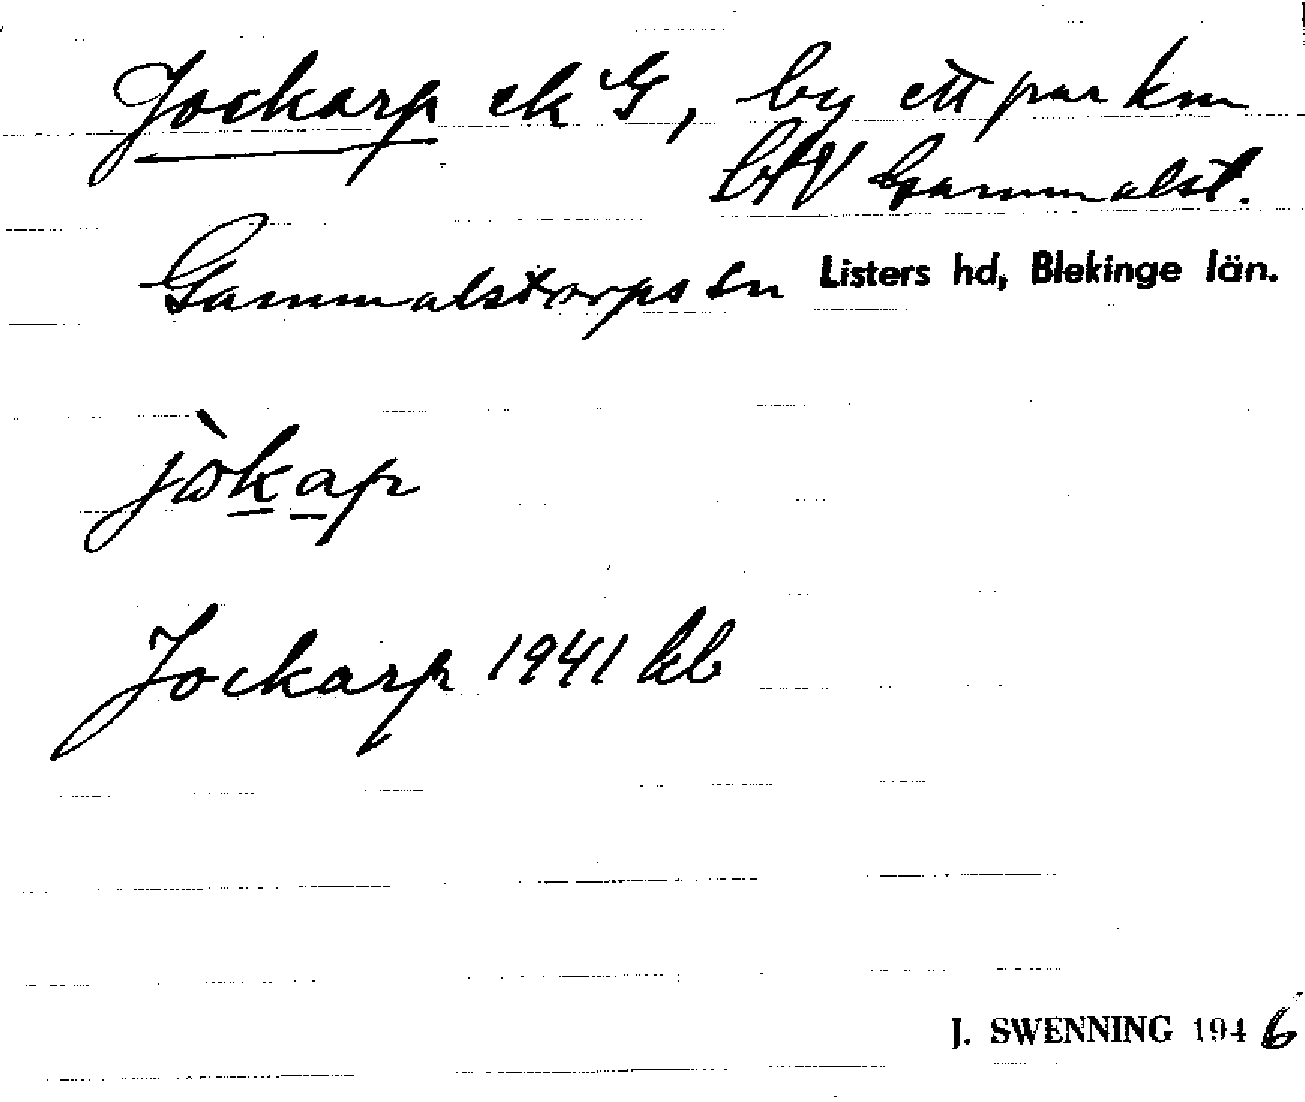 Jockarp ek G, by ett par km
btV Gammalst.
Gammalstorps sn Listers hd, Blekinge län.
jòkap
Jockarp 1941 kb
J. SWENNING 1946